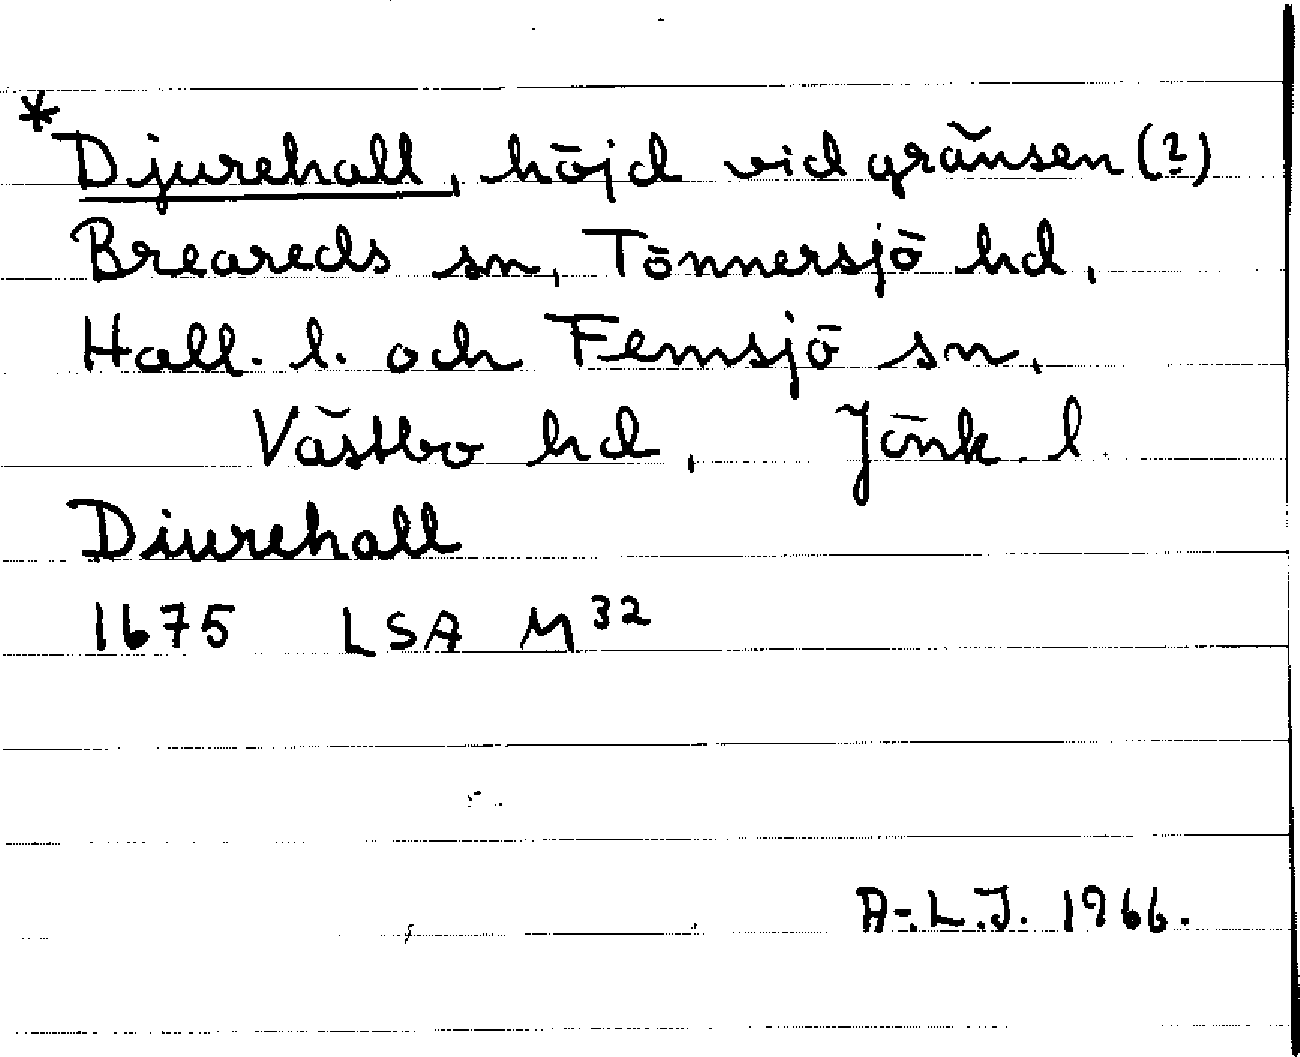 * Djurehall, höjd vid gränsen (?)
Breareds sn, Tönnersjö hd,
Hall. l. och Femsjö sn,
Västbo hd, Jönk. l
Diurehall
1675 LSA M32
A-L.J. 1966.